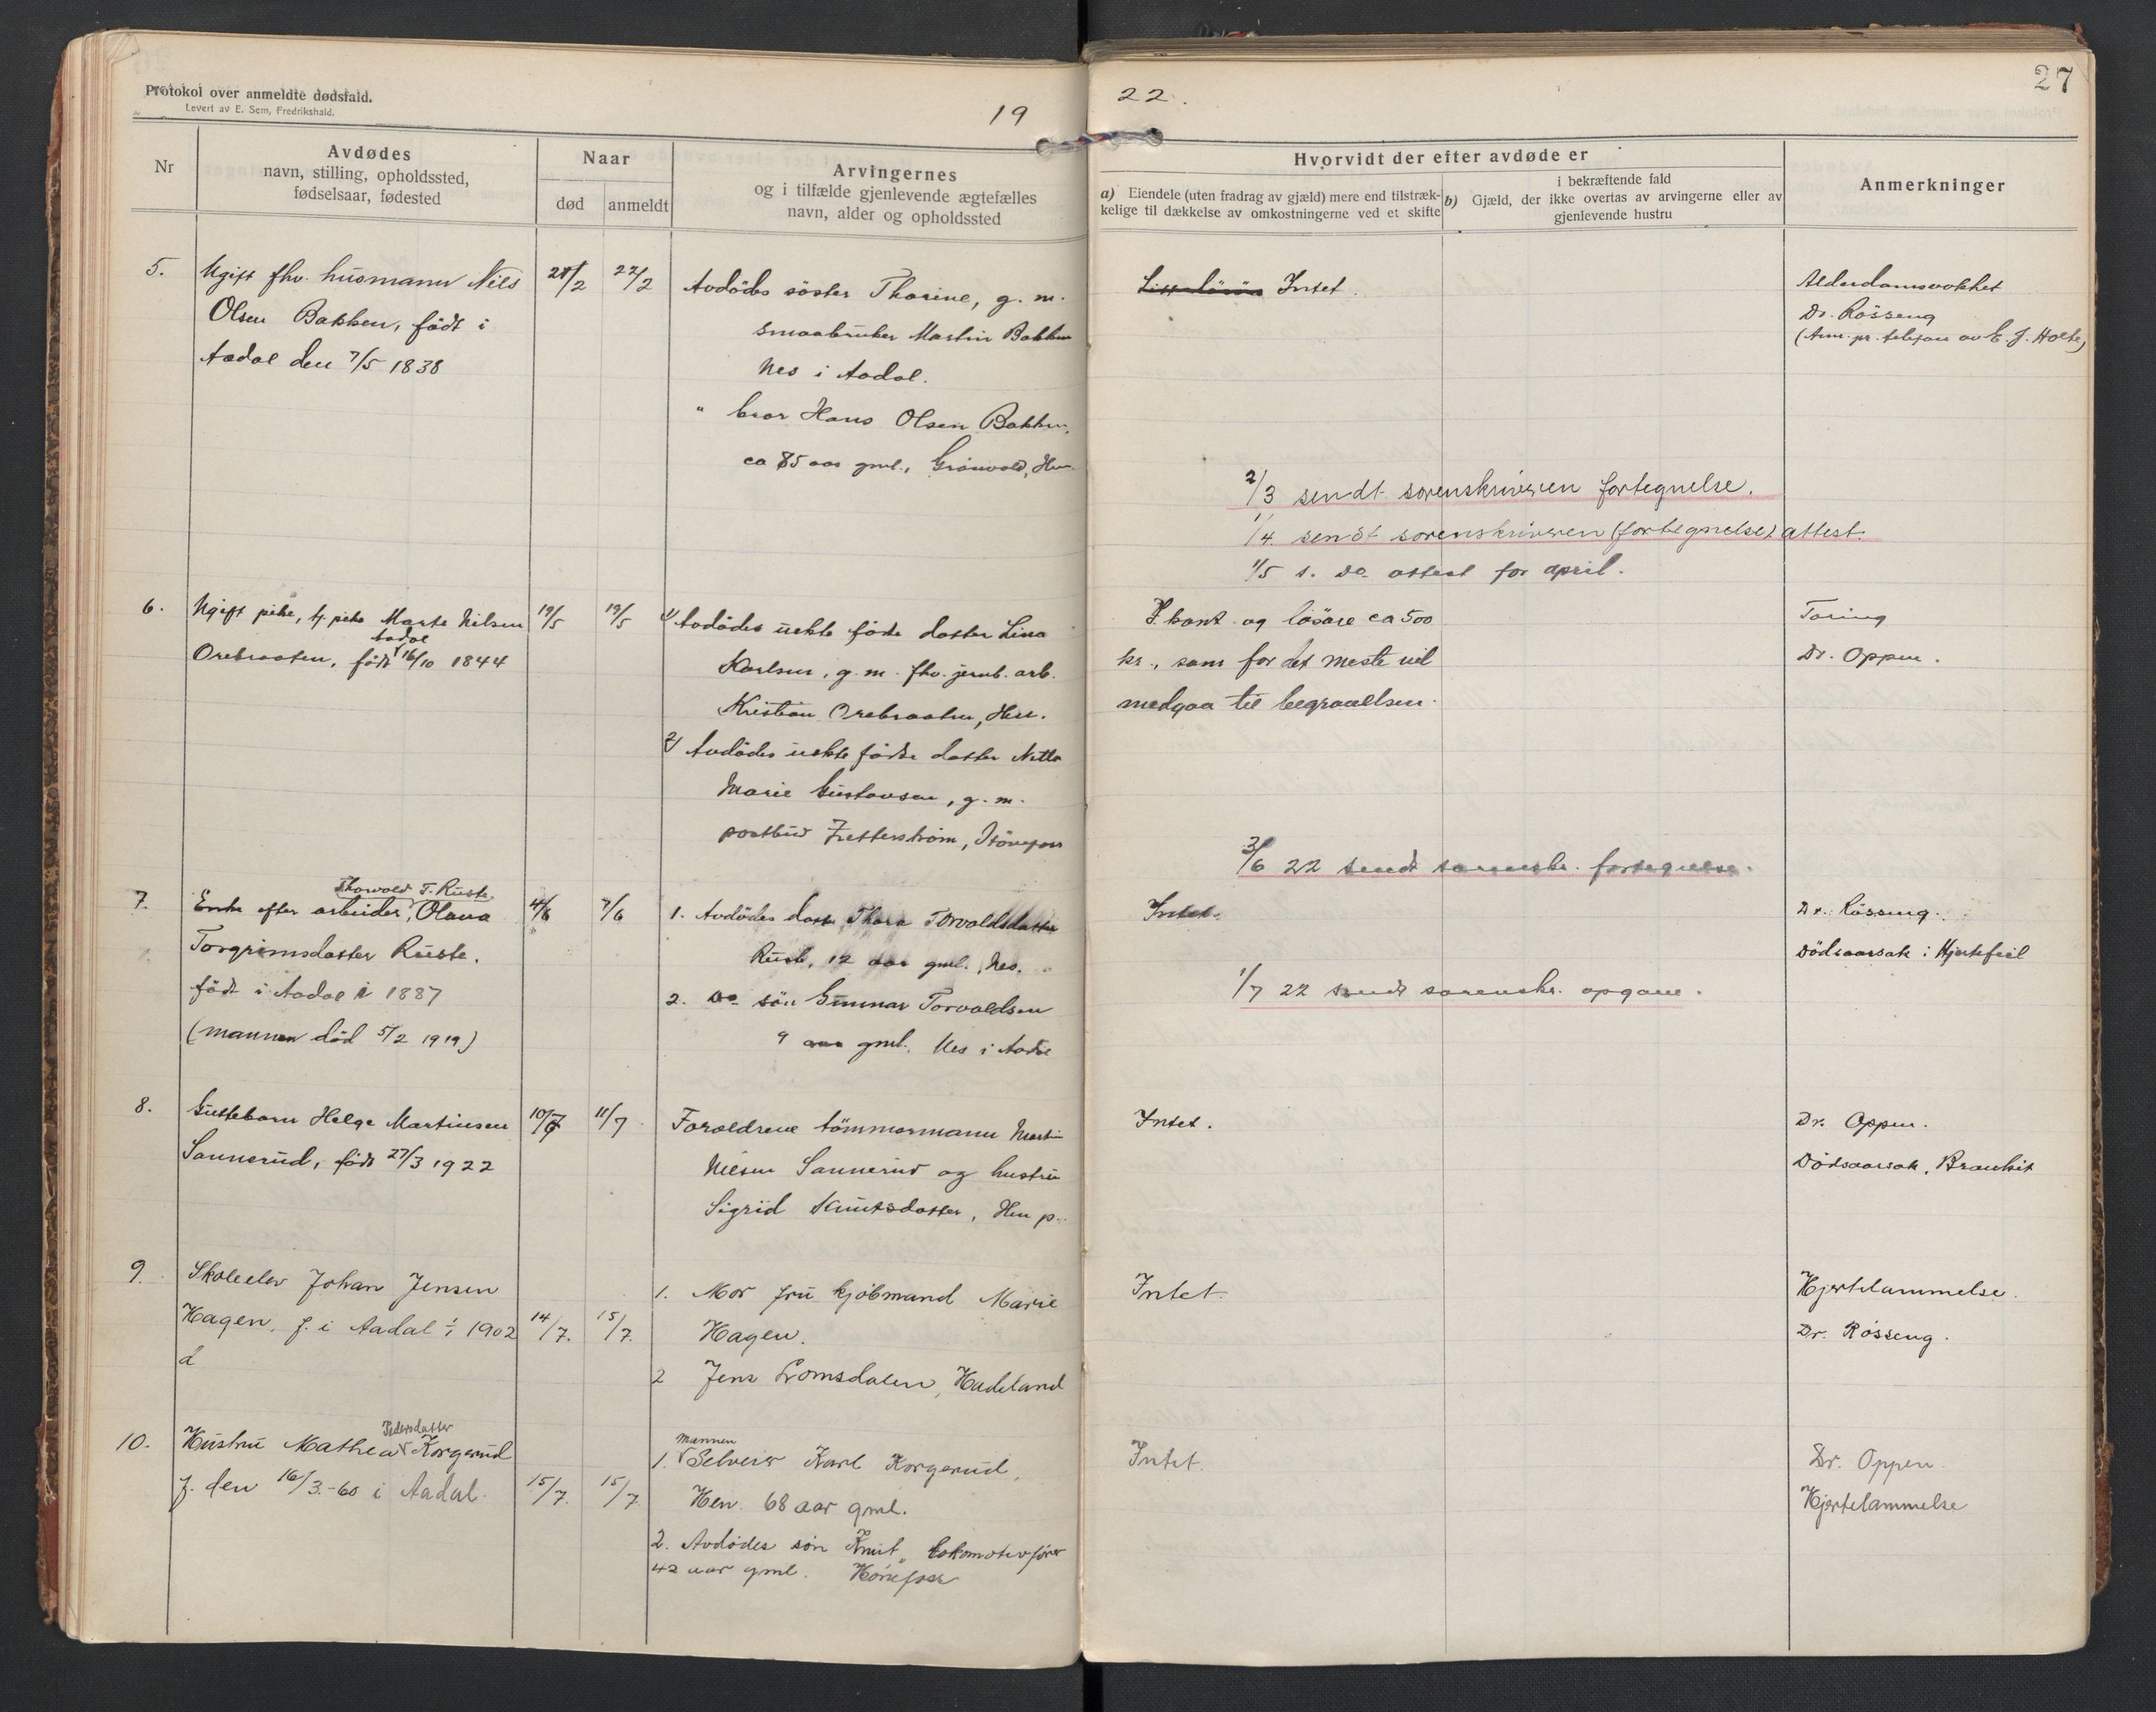 Protokol over anmeldte dødsfald.
Levert av E. Sem, Fredrikshald.
19
22.
27
Nr
Avdødes
navn, stilling, opholdssted,
fødselsaar, fødested
Naar
død
anmeldt
Arvingernes
og i tilfælde gjenlevende ægtefælles
navn, alder og opholdssted
Hvorvidt der efter avdøde er
a) Eiendele (uten fradrag av gjæld) mere end tilstræk-
kelige til dækkelse av omkostningerne ved et skifte
i bekræftende fald
b) Gjæld, der ikke overtas av arvingerne eller av
gjenlevende hustru
Anmerkninger
5.
Ugift fhv. husmann Nils
Olsen Bakken, født i
Aadal den 7/5 1838
21/2
22/2
Avdødes søster Thorine, g. m.
smaabruker Martin Bakken
Nes i Aadal.
" bror Hans Olsen Bakken,
ca 85 aar gml., Grønvold, Hen
Intet.
Alderdomsvakhet
Dr. Røsseng
(Anm. pr. telefon av E. J. Holte)
2/3 sendt sorenskriveren fortegnelse.
1/4 sendt sorenskriveren (fortegnelse) attest.
1/5 s. do attest for april.
6.
Ugift pike, Marte Nilsen
Aadal
Orebraaten, født 16/10 1844
19/5
19/5
1) Avdødes uekte fødte datter Lina
Karlsen, g. m. fhv. jernb. arb.
Kristian Orebraaten, Hen.
2) Avdødes uekte fødte datter Netta
Marie Gustavsen, g. m.
postbud Zetterstrøm, Hønefoss
I kont. og løsøre ca 500
kr., som for det meste vil
medgaa til begravelsen.
Tæring
Dr. Oppen.
3/6 22 sendt sorenskr. fortegnelse.
7.
Thorvald T. Ruste
Enke efter arbeider, Olava
Torgrimsdatter Ruste.
født i Aadal i 1887
(mannen død 5/2 1919)
4/6
7/6
1. Avdødes datter Thora Torvaldsdatter
Ruste, 12 aar gml. Nes.
2. Do søn Gunnar Torvaldsen
9 aar gml. Nes i Aadal
Intet.
Dr. Røsseng.
Dødsaarsak: Hjertefeil
1/7 22 sendt sorenskr. opgave.
8.
Guttebarn Helge Martinsen
Sannerud, født 27/3 1922
10/7
11/7
Foreldrene tømmermann Martin
Nilsen Sannerud og hustru
Sigrid Knutsdatter, Hen p.
Intet.
Dr. Oppen.
Dødsaarsak, Bronkit
9.
Skoleelev Johan Jensen
Hagen, f. i Aadal 1/1 1902
d
14/7.
15/7.
1. Mor fru kjøbmand Marie
Hagen.
2 Jens Lomsdalen, Hadeland
Intet.
Hjertelammelse.
Dr. Røsseng.
10.
Pedersdatter
Hustru Mathea Korgerud
f. den 16/3.-60 i Aadal.
15/7.
15/7
mannen
1. Selveier Karl Korgerud,
Hen. 68 aar gml.
2. Avdødes søn Knut, Lokomotivfører
42 aar gml. Hønefoss
Intet.
Dr. Oppen.
Hjertelammelse